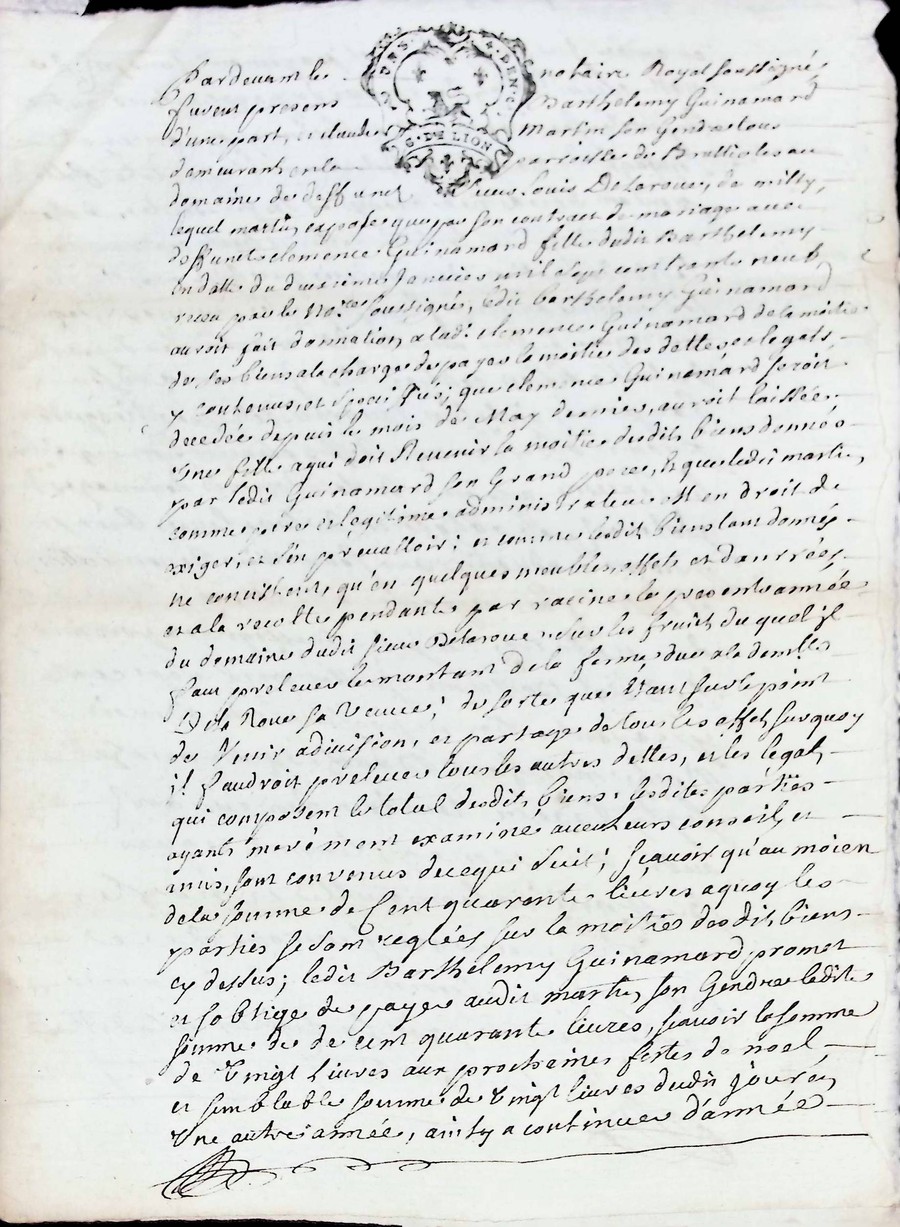 Pardevant le notaire Royal soussigné,
furent presens Barthelemy Guinamard
d'une part, et claude Martin son Gendre tous
demeurant en la parroisse de Brullioles au
domaine de deffunct sieur Louis Delaroue, de milly,
lequel martin expose que par son contract de mariage avec
deffuncte clemence Guinamard fille dudit Barthelemy
en datte du deuxieme Janvier mil sept cent trente neuf,
receu par le no.re soussigné, ledit barthelemy Guinamard
auroit fait donnation, a lad. clemence Guinamard de la moitie
de ses biens a la charge de payer la moitie des dettes et legats
y contenus, et speciffiés; que clemence Guinamard seroit
decedée depuis le mois de May dernier, auroit laissée
Une fille a qui doit Revenir la moitie desdits biens donnés
par ledit Guinamard son Grand pere, et que ledit martin,
comme pere et legitime administrateur est en droit de
exiger, et s'en prevalloir; et comme lesdits biens tant donnés
ne consistent, qu'en quelques meubles, effets et danrrées,
et a la recolte pendante par racine la presente année
du domaine dudit sieur Delaroue, sur les fruits du quel il
faut prelever le montant de la ferme due a la demlle
De la Roue sa Veuve; de sorte que étant sur le point
de Venir a division, et partage de tous les effets sur quoy
il faudroit prelever tous les autres dettes, et les legats,
qui composent le total desdits biens, lesdites parties
ayants meurement examiné avec leurs conseils, et
amis, sont convenus de ce qui suit; sçavoir qu'au moien
de la somme de Cent quarante livres a quoy les
parties se sont reglées sur la moitie des dits biens
cy dessus; ledit Barthelemy Guinamard promet
et s'oblige de payer audit martin son Gendre ladite
somme de de cent quarante livres, sçavoir la somme
de Vingt livres aux prochaines festes de noel,
et semblable somme de Vingt livres dudit jour en
Une autre année, ainsy a continuer d'année
G. DE LION